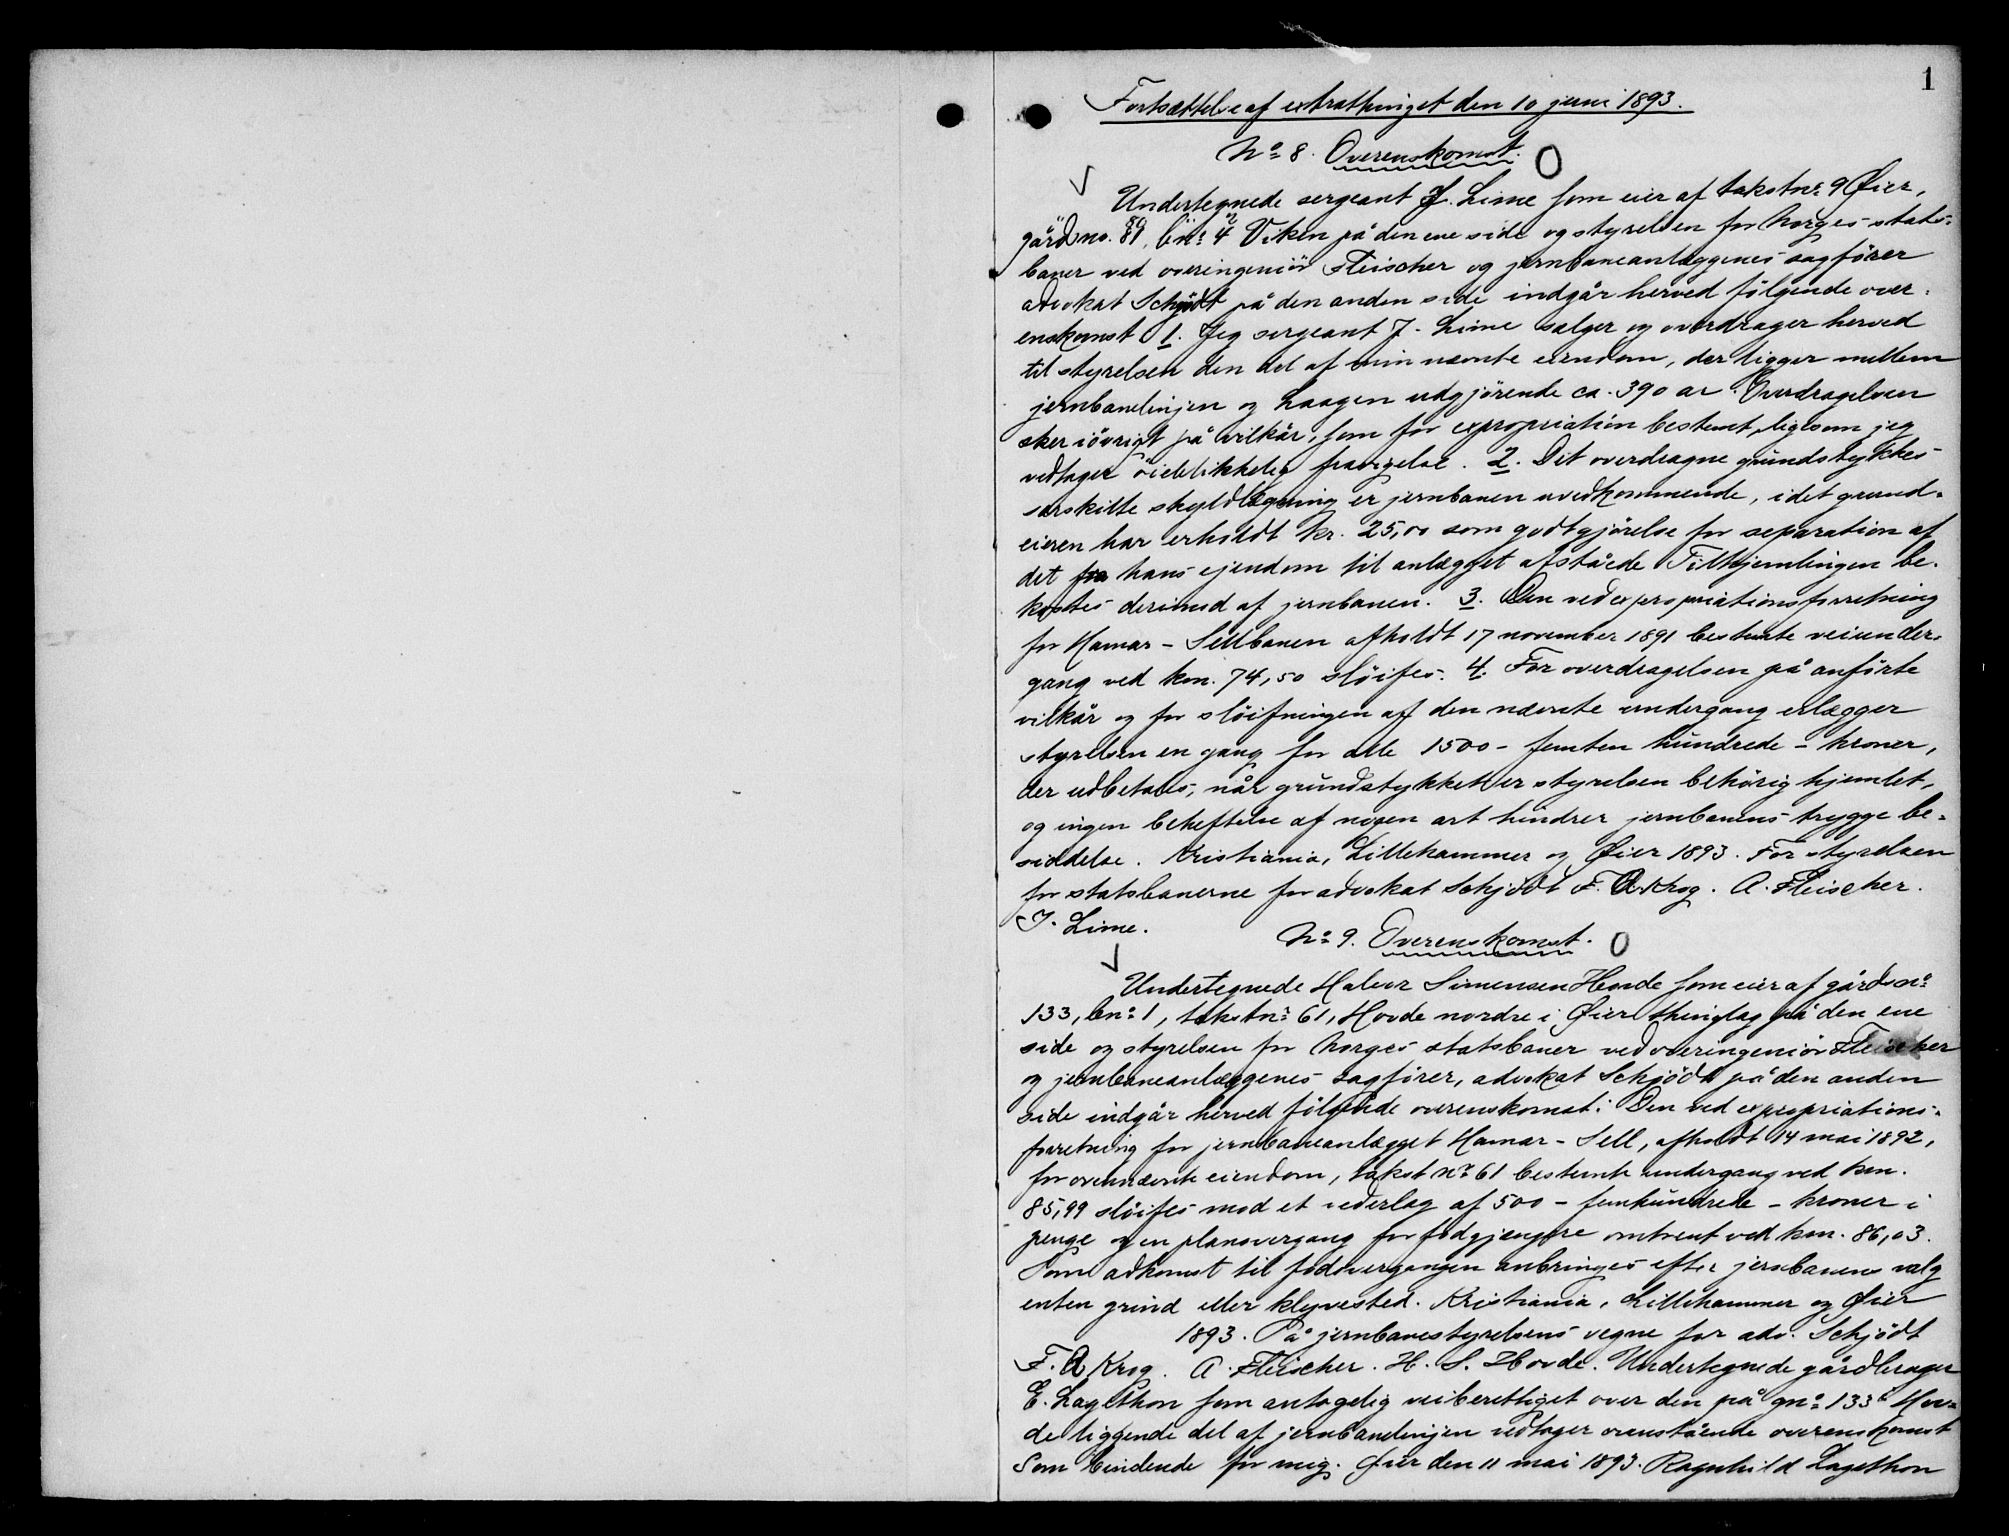 1
Fortsættelse af extrathinget den 10 juni 1893.
No 8. Overenskomst.
Undertegnede sergeant J. Lime som eier af takstnr 9 Øier,
gårdsno. 89, bnr 4 Viken på den ene side og styrelsen for Norges stats-
baner ved overingeniör Fleischer og jernbaneanlæggenes sagförer
advokat Schjödt på den anden side indgår herved fölgende over-
enskomst 1. Jeg sergeant J. Lime sælger og overdrager herved
til styrelsen den del af min nævnte eiendom, der ligger mellem
jernbanelinjen og Laagen udgjörende ca. 390 ar. Overdragelsen
sker iövrigt på vilkår, som for expropriation bestemt, ligesom jeg
vedtager öieblikkelig fravigelse. 2. Det overdragne grundstykkes
særskilte skyldlægning er jernbanen uvedkommende, idet grund-
eieren har erholdt kr. 25,00 som godtgjörelse for separation af
det fra hans ejendom til anlægget afståede. Tilhjemlingen be-
kostes derimod af jernbanen. 3. Den ved expropriationsforretning
for Hamar - Sellbanen afholdt 17 november 1891 bestemte veiunder-
gang ved km. 74,50 slöifes. 4. For overdragelsen på anförte
vilkår og for slöifningen af den nævnte undergang erlægger
styrelsen en gang for alle 1500 - femten hundrede - kroner,
der udbetales, når grundstykket er styrelsen behörig hjemlet,
og ingen beheftelse af nogen art hindrer jernbanens trygge be-
siddelse. Kristiania, Lillehammer og Øier 1893. For styrelsen
for statsbanerne for advokat Schjödt F. A. Krog. A. Fleischer.
J. Lime.
No 9. Overenskomst.
Undertegnede Halvor Simensen Hovde som eier af gårdsno
133, bno 1, takstnr 61, Hovde nordre i Øier thinglag på den ene
side og styrelsen for Norges statsbaner ved overingeniör Fleischer
og jernbaneanlæggenes sagförer, advokat Schjödt på den anden
side indgår herved fölgende overenskomst: Den ved expropriations-
forretning for jernbaneanlægget Hamar - Sell, afholdt 14 mai 1892,
for ovennævnte eiendom, takst no 61 bestemte undergang ved km.
85,99 slöifes mod et vederlag af 500 - femhundrede - kroner i
penge og en planovergang for fodgjengere omtrent ved km. 86,03.
Som adkomst til fodovergangen anbringes efter jernbanens valg
enten grind eller klyvested. Kristiania, Lillehammer og Øier
1893. På jernbanestyrelsens vegne for adv. Schjödt
F. A Krog. A. Fleischer. H. S. Hovde. Undertegnede gårdbruger
E. Lagethon som antagelig veiberettiget over den på gno 133 Hov-
de liggende del af jernbanelinjen vedtager ovenstående overenskomst
som bindende for mig. Øier den 11 mai 1893. Ragnhild Lagethon